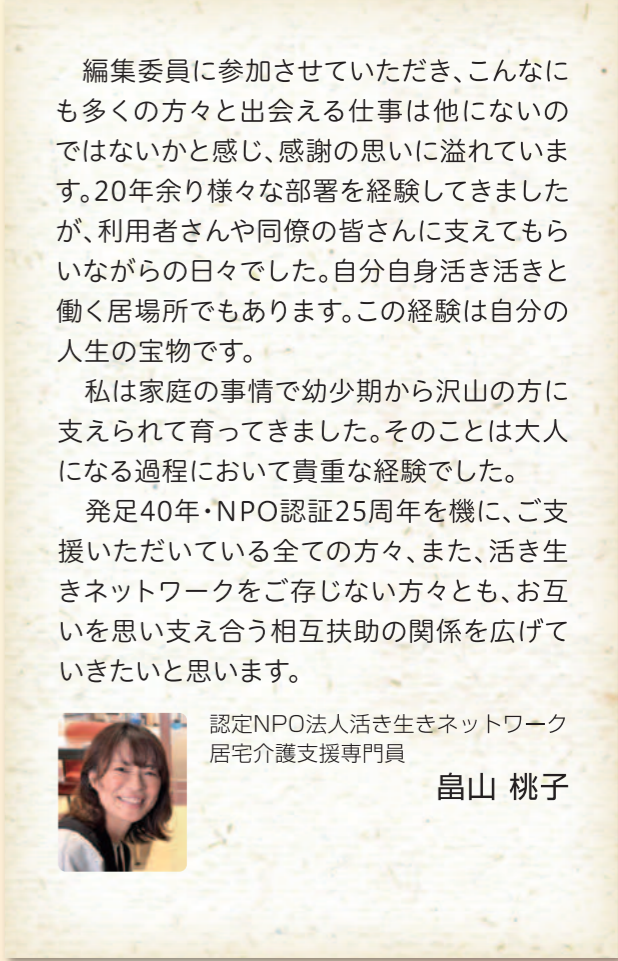 編集委員に参加させていただき、こんなに
も多くの方々と出会える仕事は他にないの
ではないかと感じ、感謝の思いに溢れていま
す。20年余り様々な部署を経験してきました
が、利用者さんや同僚の皆さんに支えてもら
いながらの日々でした。自分自身活き活きと
働く居場所でもあります。この経験は自分の
人生の宝物です。
　私は家庭の事情で幼少期から沢山の方に
支えられて育ってきました。そのことは大人
になる過程において貴重な経験でした。
　発足40年・NPO認証25周年を機に、ご支
援いただいている全ての方々、また、活き生
きネットワークをご存じない方々とも、お互
いを思い支え合う相互扶助の関係を広げて
いきたいと思います。
認定NPO法人活き生きネットワーク
居宅介護支援専門員
畠山 桃子